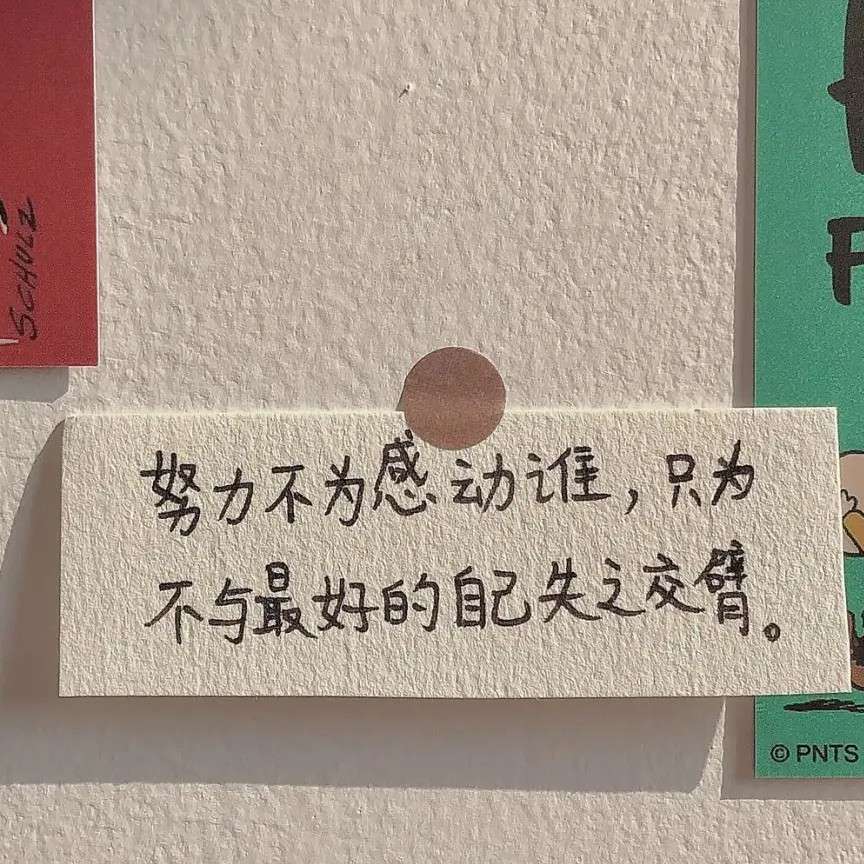 SCHULZ
努力不为感动谁，只为
不与最好的自己失之交臂。
© PNTS